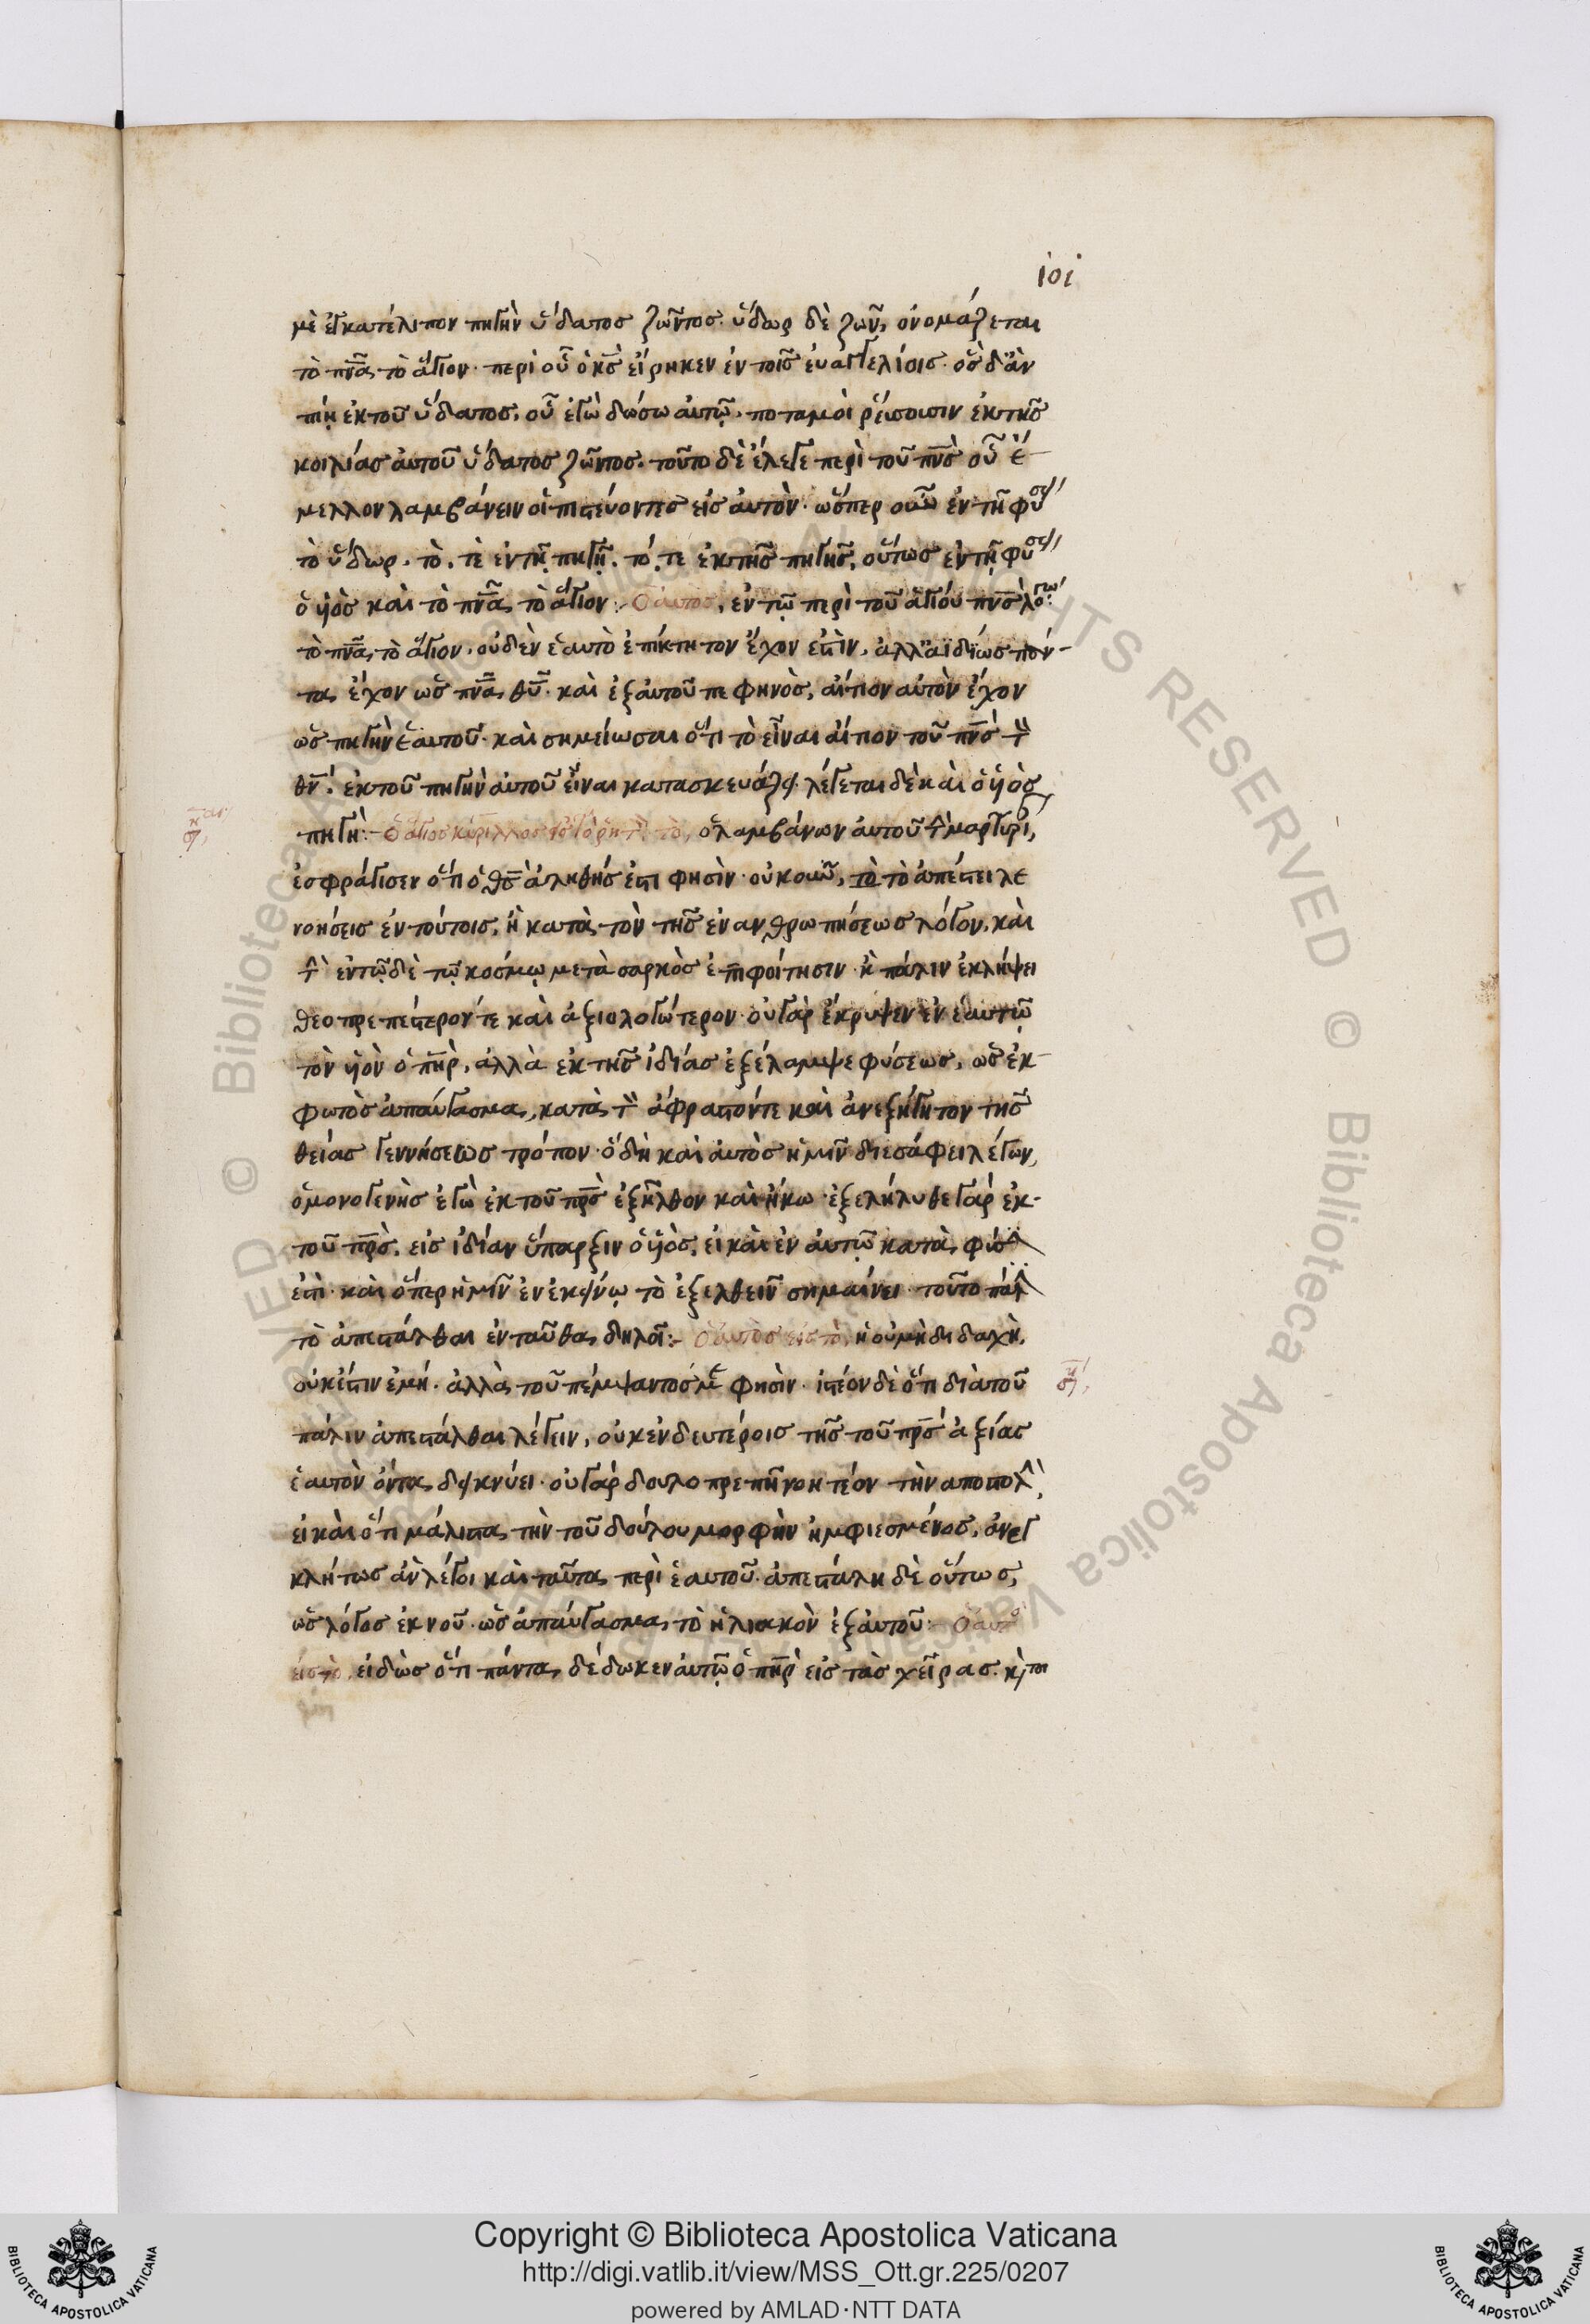 101
μὲ ἐγκατέλιπον πηγὴν ὕδατοσ ζῶντοσ. ὕδωρ δὲ ζῶν, ὀνομάζεται
τὸ πν̅α τὸ ἅγιον· περὶ οὗ ὁ κ̅σ εἴρηκεν ἐν τοῖσ ἐυαγγελίοισ· ὃσ δ' ἂν
πίῃ ἐκ τοῦ ὕδατοσ, οὗ ἐγὼ δώσω αὐτῷ. ποταμοὶ ῥεύσουσιν ἐκ τῆσ
κοιλίασ ἀυτοῦ ὕδατοσ ζῶντοσ. τοῦτο δὲ ἔλεγε περὶ τοῦ πν̅σ οὗ ἔ
μελλον λαμβάνειν οἱ πιστεύοντεσ εἰσ ἀυτὸν· ὥσπερ οὖν ἐν τῇ φύσει
τὸ ὕδωρ. τὸ, τὲ ἐν τῇ πηγῇ. τό, τε ἐκ τῆσ πηγῆσ, οὕτωσ ἐν τῇ φύσει
ὁ ὑιὸσ καὶ τὸ πν̅α τὸ ἅγιον:- Ὁ ἀυτοσ, ἐν τῷ περὶ τοῦ ἁγίου πν̅σ λόγω:
τὸ πν̅α τὸ ἅγιον. οὐδὲν ἑαυτὸ ἐπίκτητον ἔχον ἐστὶν, ἀλλ' ἀϊδίωσ πάν-
τα ἔχον ὡσ πν̅α θ̅υ. καὶ ἐξ ἀυτοῦ πεφηνὸσ, ἀίτιον αὐτὸν ἔχον
ὡσ πηγὴν ἑαυτοῦ· καὶ σημείωσαι ὅτι τὸ εἶναι ἀίτιον τοῦ πν̅σ τὸν
θ̅ν. ἐκ τοῦ πηγὴν ἀυτοῦ εἶναι κατασκευάζει. λέγεται δὲ καὶ ὁ ὑιὸσ
πηγὴ:- Ὁ ἅγιοσ κύριλλοσ ὁ λαμβάνων ἀυτοῦ τὴν μαρτυρί,
ἐσφράγισεν ὅτι ὁ θ̅σ ἀληθήσ ἐστι φησὶν· οὐκοῦν, τὸ τὸ ἀπέστειλε
νοήσεισ ἐν τούτοισ, ἢ κατὰ τὸν τῆσ ἐνανθρωπήσεωσ λόγον, καὶ
τὴν ἐν τῷδε τῷ κοσμῳ μετὰ σαρκὸσ ἐπιφοίτησιν· ἢ πάλιν ἐκλήψει
θεοπρεπέστερον τε καὶ ἀξιολογώτερον· οὐ γὰρ ἔκρυψεν ἐν ἑαυτῷ
τὸν ὑιὸν ὁ π̅ηρ, ἀλλὰ ἐκ τῆσ ἰδίασ ἐξέλαμψε φύσεωσ, ὡσ ἐκ
φωτὸσ ἀπαύγασμα, κατὰ τὸν ἄφραστόν τε καὶ ἀνεξήγητον τῆσ
θείασ γεννήσεωσ τρόπον· ὃ δὴ καὶ ἀυτὸσ ἡμῖν διεσάφει λέγων,
ὁ μονογενὴσ ἐγὼ ἐκ τοῦ π̅ρσ ἐξῆλθον καὶ ἥκω· ἐξελήλυθε γὰρ ἐκ
τοῦ π̅ρσ. εἰσ ἰδίαν ὕπαρξιν ὁ ὑιὸσ, εἰ καὶ ἐν ἀυτῷ κατὰ φύσιν
ἐστὶ· καὶ ὅπερ ἡμῖν ἐν ἐκείνῳ τὸ ἐξελθεῖν σημαίνει· τοῦτο πάλιν
τὸ ἀπεστάλθαι ἐνταῦθα δηλοῖ:- Ὁ ἀυτὸσ εἰσ τὸ, ἡ οὐμὴ διδαχὴ.
οὐκ ἔστιν ἐμή. ἀλλὰ τοῦ πέμψαντοσ μὲ φησὶν· ἰστέον δὲ ὅτι διὰ τοῦ
πάλιν ἀπεστάλθαι λέγειν, οὐκ ἐν δευτέροισ τῆσ τοῦ π̅ρσ ἀξίασ
ἑαυτὸν ὄντα δεικνύει· οὐ γὰρ δουλοπρεπῆ νοητέον τὴν αποστολὴν,
εἰ καὶ ὅτι μάλιστα τὴν τοῦ δούλου μορφὴν ἠμφιεσμένοσ, ἀνεγ
κλήτωσ ἂν λέγοι καὶ ταῦτα περὶ ἑαυτοῦ· ἀπεστάλη δὲ οὕτωσ,
ὡσ λόγοσ ἐκ νοῦ. ὡσ ἀπαύγασμα τὸ ἡλιακὸν ἐξ ἀυτοῦ:- Ὁ ἀυτὸ
εἰσ τὸ, εἰδὼσ ὅτι πάντα δέδωκεν ἀυτῷ ὁ π̅ηρ εἰσ τὰσ χεῖρασ. καὶ
Copyright © Biblioteca Apostolica Vaticana
http://digi.vatlib.it/view/MSS_Ott.gr.225/0207
powered by AMLAD·NTT DATA